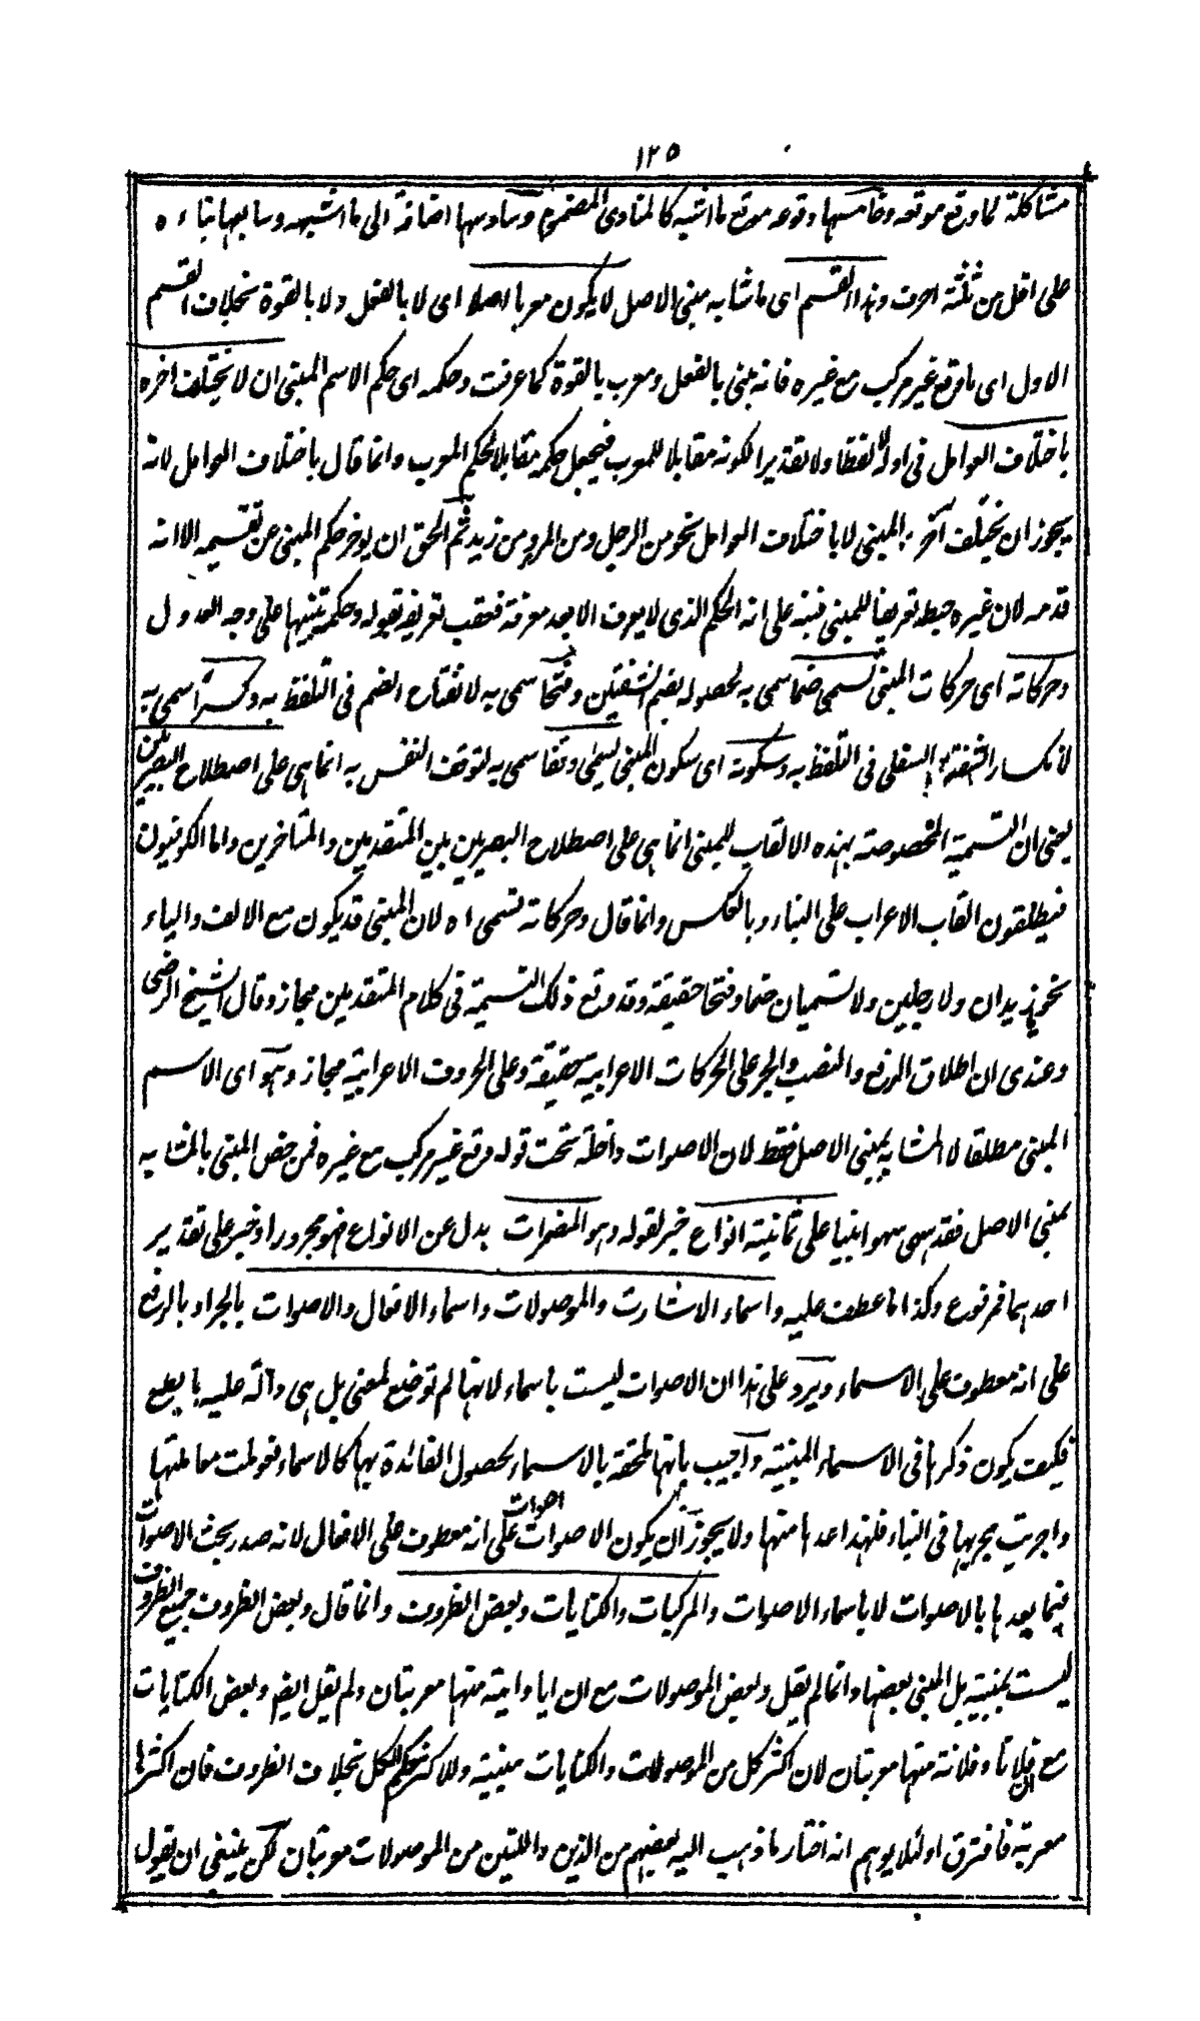 ١٢٥
مشاكلة لما وقع موقعه وخامسها وقوعه موقع ما اشبه كالمنادى المضموم وسادسها اضافة الى ما اشبهه وسابعها بناءه
على اقل من ثلثة احرف وهذا القسم اى ما شابه مبنى الاصل لا يكون معربا اصلا اى لا بالفعل ولا بالقوة بخلاف القسم
الاول اى ما وقع غير مركب مع غيره فانه مبنى بالفعل ومعرب بالقوة كما عرفت وحكمه اى حكم الاسم المبنى ان لا يختلف اخره
باختلاف العوامل فى اوله لفظا ولا تقديرا لكونه مقابلا للمعرب فيجعل حكمه مقابلا لحكم المعرب وانما قال باختلاف العوامل لانه
يجوز ان يختلف آخر المبنى لا باختلاف العوامل نحو من الرجل ومن امرء ومن زيد ثم الحق ان يوخر حكم المبنى عن تقسيمه الا انه
قدمه لان غيره جعله تعريفا للمبنى فنبه على انه الحكم الذى لا يعرف الا بعد معرفة فعقب تعريفه بقوله وحكمه تنبيها على وجه العدول
وحركاته اى حركات المبنى تسمى ضما سمى به لحصوله بضم الشفتين وفتحا سمى به لانفتاح الفم فى التلفظ به وكسرا سمى به
لانكسار الشفة السفلى فى التلفظ به وسكونه اى سكون المبنى يسمى وقفا سمى به لتوقف النفس به انما هى على اصطلاح البصريين
يعنى ان التسمية المخصوصة بهذه الالقاب للمبنى انما هى على اصطلاح البصريين بين المتقدمين والمتاخرين واما الكوفيون
فيطلقون القاب الاعراب على البناء وبالعكس وانما قال وحركاته تسمى اه لان المبنى قد يكون مع الالف والياء
نحو يا زيدان ولا رجلين ولا تسميان ضما وفتحا حقيقة وقد وقع ذلك التسمية فى كلام المتقدمين مجاز وقال الشيخ الرضى
وعندى ان اطلاق الرفع والنصب والجر على الحركات الاعرابية حقيقة وعلى الحروف الاعرابية مجاز وهو اى الاسم
المبنى مطلقا لا المشابه بمبنى الاصل فقط لان الاصوات داخلة تحت قوله وقع غير مركب مع غيره فمن خص المبنى بالمشابه
بمبنى الاصل فقد سهى سهوا بينا على ثمانية انواع خبر لقوله وهو المضمرات بدل عن الانواع فهو مجرور او خبر على تقدير
احدهما فمرفوع وكذا ما عطف عليه واسماء الاشارت والموصولات واسماء الافعال والاصوات بالجر او بالرفع
على انه معطوف على الاسماء ويرد على هذا ان الاصوات ليست باسماء لانها لم توضع لمعنى بل هى دآلة عليه بالطبع
فكيف يكون ذكرها فى الاسماء المبنية واجيب بانها ملحقة بالاسماء لحصول الفائدة بها كالاسماء فعوملت معاملتها
واجريت مجريها فى البناء فلهذا اعدها منها ولا يجوز ان يكون الاصوات اصوات على انه معطوف على الافعال لانه صدر بحث الاصوات
فيما بعدها بالاصوات لا باسماء الاصوات والمركبات والكنايات وبعض الظروف وانما قال وبعض الظروف جميع الظروف
ليست بمبنية بل المبنى بعضها وانما لم يقل وبعض الموصولات مع ان ايا واية منها معربتان ولم يقل ايضا وبعض الكنايات
مع ان فلانا وفلانة منها معربتان لان اكثر كل من الموصولات والكنايات مبنية وللاكثر حكم الكل بخلاف الظروف فان اكثرها
معربة فافترق او لئلا يوهم انه اختار ما ذهب اليه بعضهم من الذين واللتين من الموصولات معربتان لكن ينبغى ان يقول